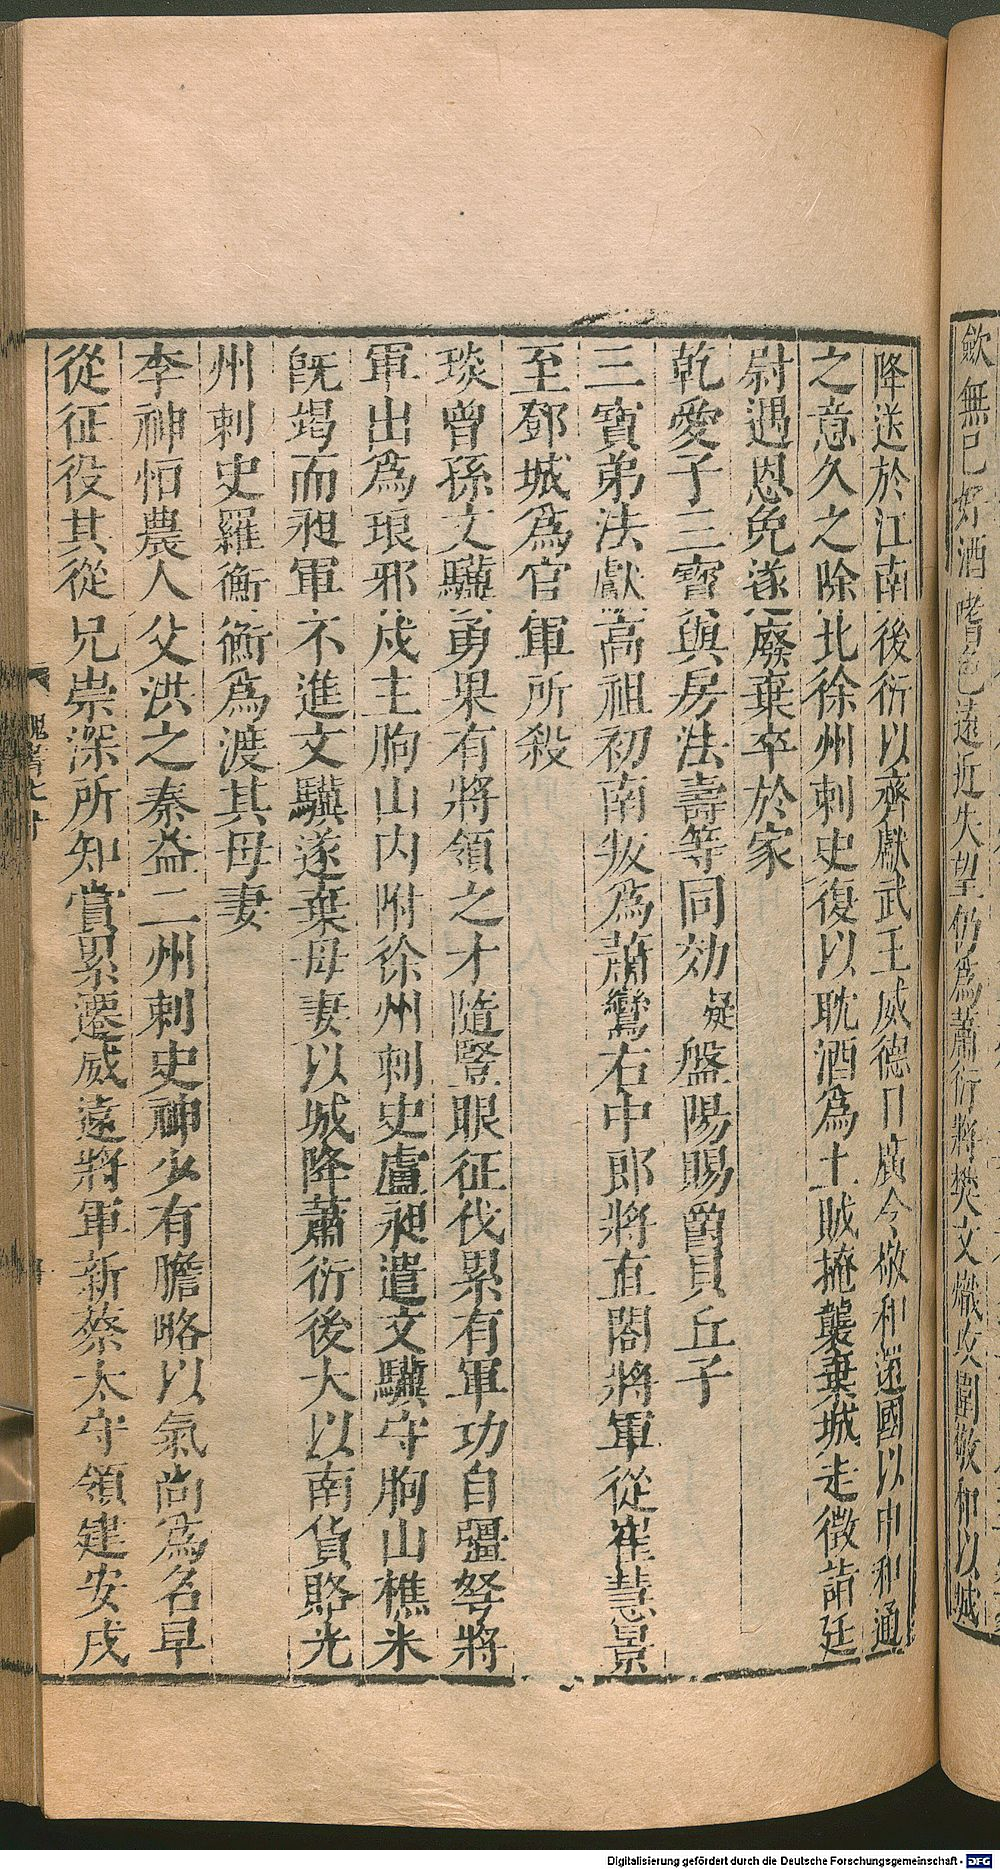 歛無已好酒嗜色遠近失望仍爲蕭衍將樊文熾攻圍敬和以城
降送於江南後衍以齊獻武王威德日廣令敬和還國以申和通
之意久之除北徐州刺史復以耽酒爲土賊掩襲棄城走徴詣廷
尉遇恩免遂廢棄卒於家
乾愛子三寳與房法壽等同効疑盤陽賜爵貝丘子
三寳弟法獻髙祖初南叛爲蕭鸞右中郎將直閤將軍從崔慧景
至鄧城爲官軍所殺
琰曾孫文驥勇果有將領之才隨竪眼征伐累有軍功自彊弩將
軍出爲琅邪戍主朐山内附徐州刺史盧昶遣文驥守朐山樵米
旣竭而昶軍不進文驥遂棄母妻以城降蕭衍後大以南貨賂光
州刺史羅衡衡爲渡其母妻
李神恒農人父洪之秦益二州刺史神少有膽略以氣尚爲名早
從征役其從兄崇深所知賞累遷威遠將軍新蔡太守領建安戍
Digitalisierung gefördert durch die Deutsche Forschungsgemeinschaft - DFG